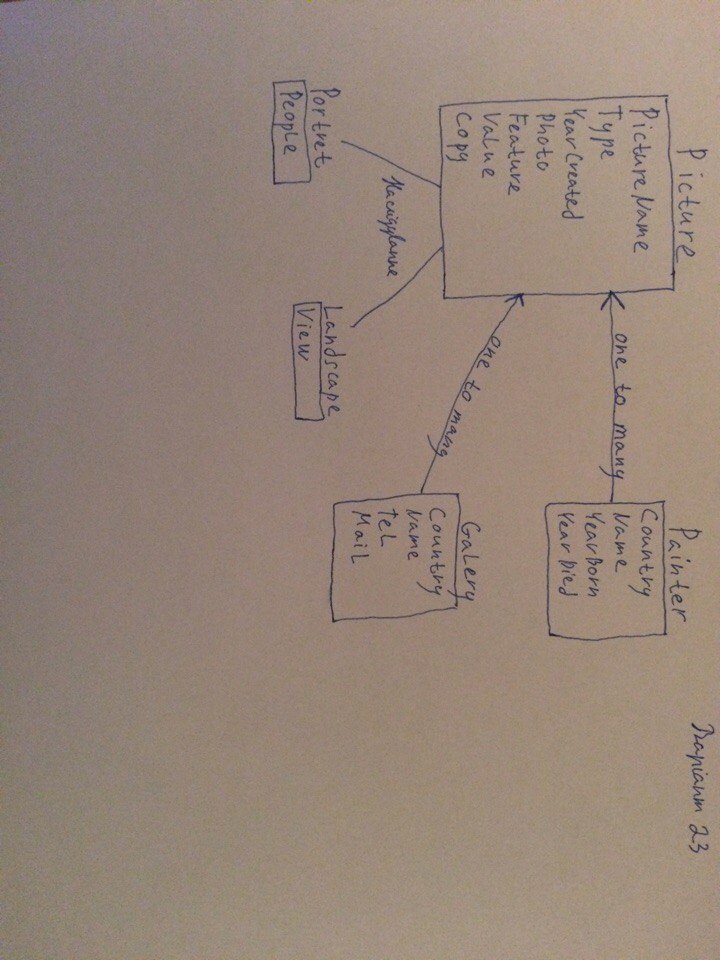 Варіант 23
Picture
PictureName
Type
YearCreated
Photo
Feature
Value
Copy
one to many
Painter
Country
Name
YearBorn
YearDied
one to many
Galery
Country
Name
Tel
Mail
Наслідування
Portret
People
Landscape
View